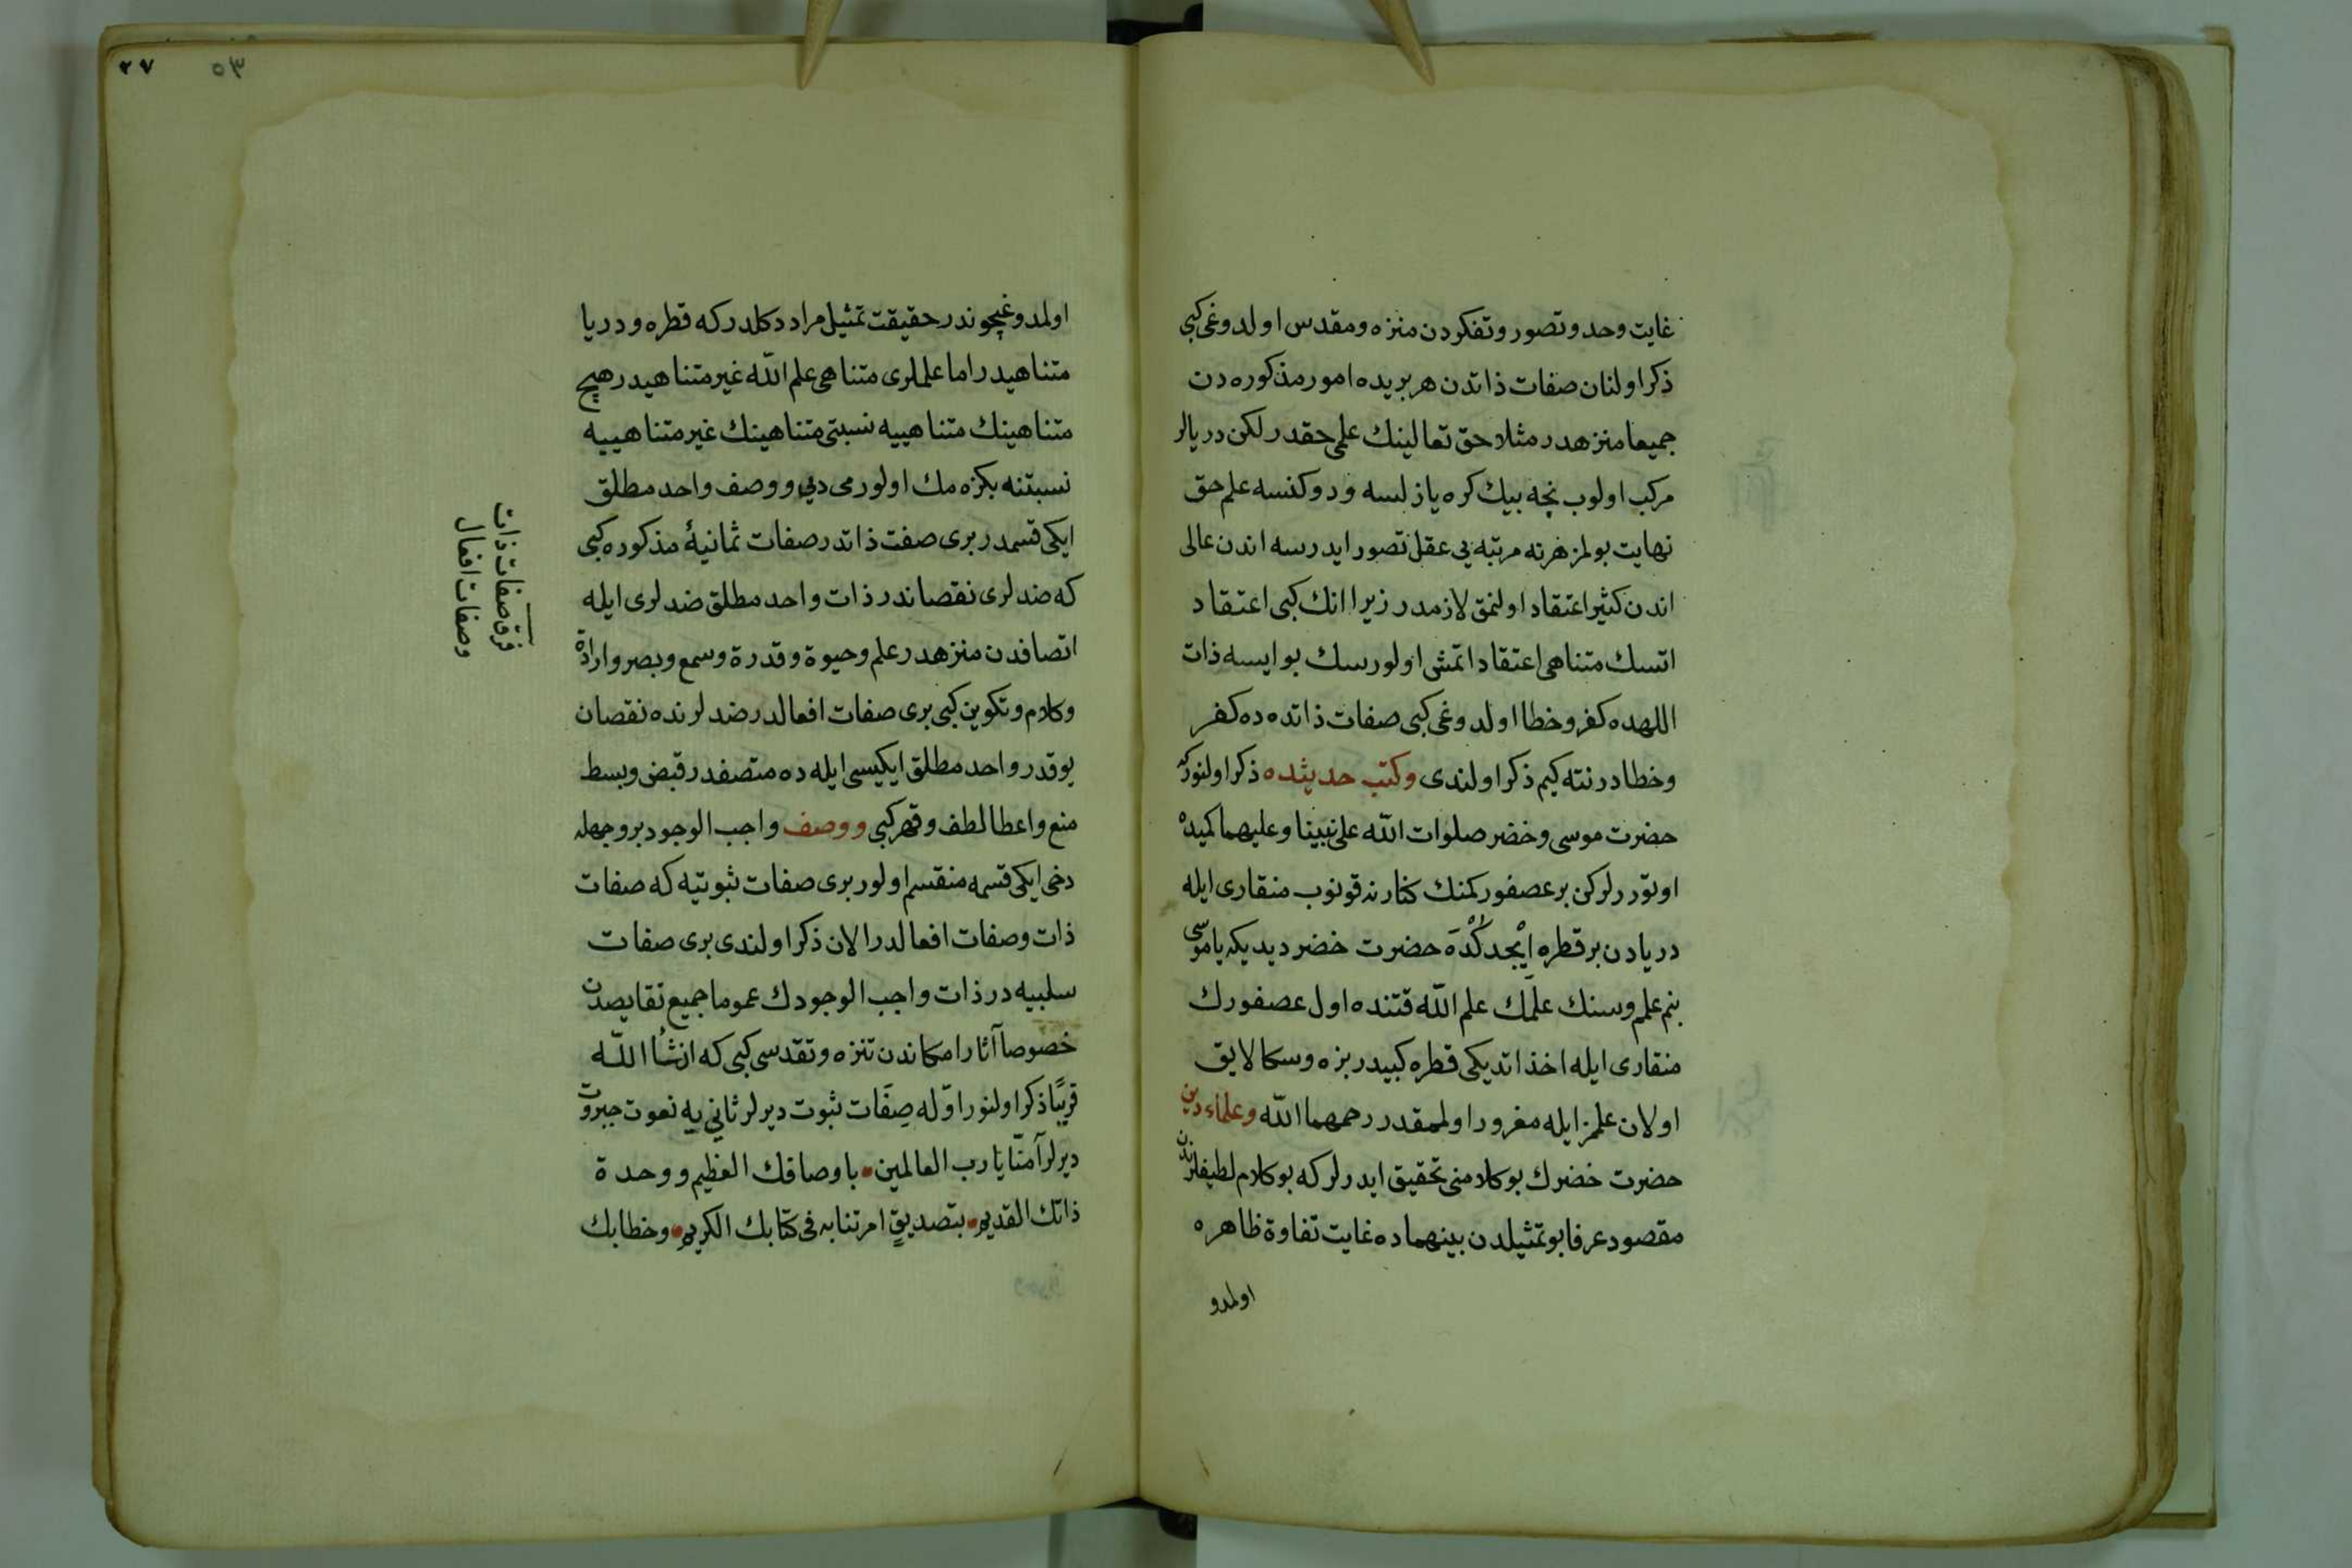 غایت وحد وتصور وتفکردن منزه ومقدس اولدوغی کبی
ذکر اولنان صفات ذاتدن هر بریده امور مذکوره دن
جمیعا منزهدر مثلا حق تعالینك علمی حقدر لکن دریالر
مرکب اولوب نچه بیك کره یازلسه ودوکنسه علم حق
نهایت بولمز هر نه مرتبه یی عقل تصور ایدرسه اندن عالی
اندن کثیر اعتقاد اولنمق لازمدر زیرا انك کبی اعتقاد
اتسك متناهی اعتقاد اتمش اولورسك بو ایسه ذات
اللهده کفر وخطا اولدوغی کبی صفات ذاتده ده کفر
وخطادر نته کیم ذکر اولندی وکتب حدیثده ذکر اولنورکه
حضرت موسی وخضر صلوات الله علی نبینا وعلیهما کمیده
اوتوررلرکن بر عصفور کمنك کنارنه قونوب منقاری ایله
دریادن بر قطره ایجدکده حضرت خضر دیدیکه یا موسی
بنم علمم وسنك علمك علم الله قتنده اول عصفورك
منقاری ایله اخذ اتدیکی قطره کبیدر بزه وسکا لایق
اولان علمز ایله مغرور اولمامقدر رحمهما الله وعلماء دین
حضرت خضرك بو کلامنی تحقیق ایدرلر که بو کلام لطیفلرندن
مقصود عرفا بو تمثیلدن بینهماده غایت تفاوة ظاهره
اولمدو
٢٧
٥٣
اولمدوغیچوندر حقیقت تمثیل مراد دکلدر که قطره ودریا
متناهیدر اما علملری متناهی علم الله غیر متناهیدر هیچ
متناهینك متناهییه نسبتی متناهینك غیر متناهییه
نسبتنه بکزه مك اولورمی دیی ووصف واحد مطلق
ایکی قسمدر بری صفت ذاتدر صفات ثمانیۀ مذکوره کبی
که ضدلری نقصاندر ذات واحد مطلق ضدلری ایله
اتصافدن منزهدر علم وحیوة وقدرة وسمع وبصر وارادة
وکلام وتکوین کبی بری صفات افعالدر ضدلرنده نقصان
یوقدر واحد مطلق ایکیسی ایله ده متصفدر قبض وبسط
منع واعطا لطف وقهر کبی ووصف واجب الوجود بر وجهله
دخی ایکی قسمه منقسم اولور بری صفات ثبوتیه که صفات
ذات وصفات افعالدر الان ذکر اولندی بری صفات
سلبیه در ذات واجب الوجودك عموما جمیع نقایصدن
خصوصا آثار امکاندن تنزه وتقدسی کبی که انشأ الله
قریبًا ذکر اولنور اوّله صِفَات ثبوت دیرلر ثانی یه نعوت جبروت
دیرلر آمنّا یا رب العالمین باوصافك العظیم ووحدة
ذاتك القدیم بتصدیقٍ امرتنا به فی کتابك الکریم وخطابك
فرق صفات ذات
وصفات افعال